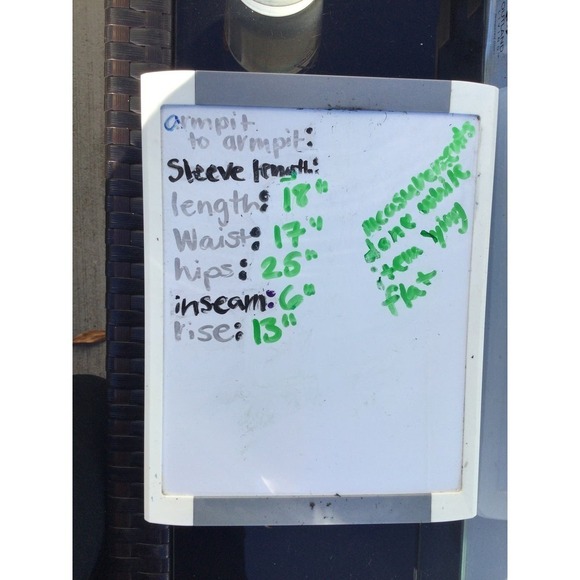 armpit
to armpit:
Sleeve length:
length: 18"
Waist: 17"
hips: 25"
inseam: 6"
rise: 13"
measurements
done while
item lying
flat